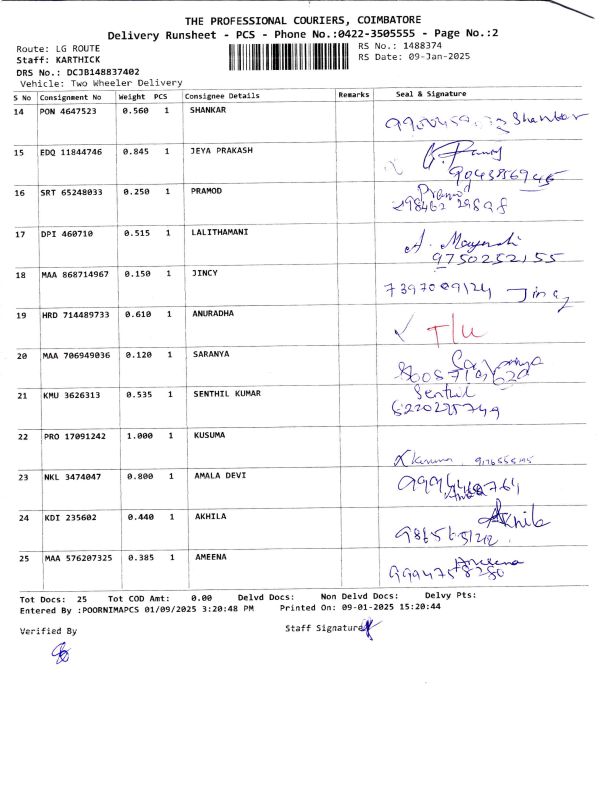 THE PROFESSIONAL COURIERS, COIMBATORE
Delivery Runsheet - PCS - Phone No.:0422-3505555 - Page No.:2
Route: LG ROUTE RS No.: 1488374
Staff: KARTHICK RS Date: 09-Jan-2025
DRS No.: DCJB148837402
Vehicle: Two Wheeler Delivery
S No Consignment No Weight PCS Consignee Details Remarks Seal & Signature
14 PON 4647523 0.560 1 SHANKAR Shankar
15 EDQ 11844746 0.845 1 JEYA PRAKASH
16 SRT 65248033 0.250 1 PRAMOD Pramod
17 DPI 460710 0.515 1 LALITHAMANI
9750252155
18 MAA 868714967 0.150 1 JINCY 7397009124 Jincy
19 HRD 714489733 0.610 1 ANURADHA T/U
20 MAA 706949036 0.120 1 SARANYA Saranya
21 KMU 3626313 0.535 1 SENTHIL KUMAR Senthil
22 PRO 17091242 1.000 1 KUSUMA
23 NKL 3474047 0.800 1 AMALA DEVI
24 KDI 235602 0.440 1 AKHILA Akhila
25 MAA 576207325 0.385 1 AMEENA Ameena
9994758280
Tot Docs: 25 Tot COD Amt: 0.00 Delvd Docs: Non Delvd Docs: Delvy Pts:
Entered By :POORNIMAPCS 01/09/2025 3:20:48 PM Printed On: 09-01-2025 15:20:44
Verified By Staff Signature